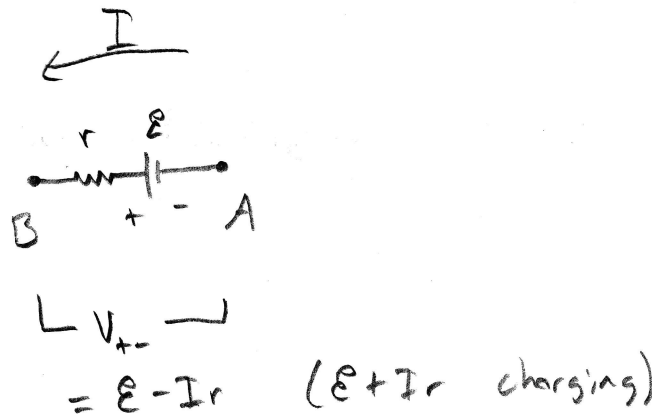 I
r ε
+ -
B A
V+-
= ε - Ir (ε + Ir charging)